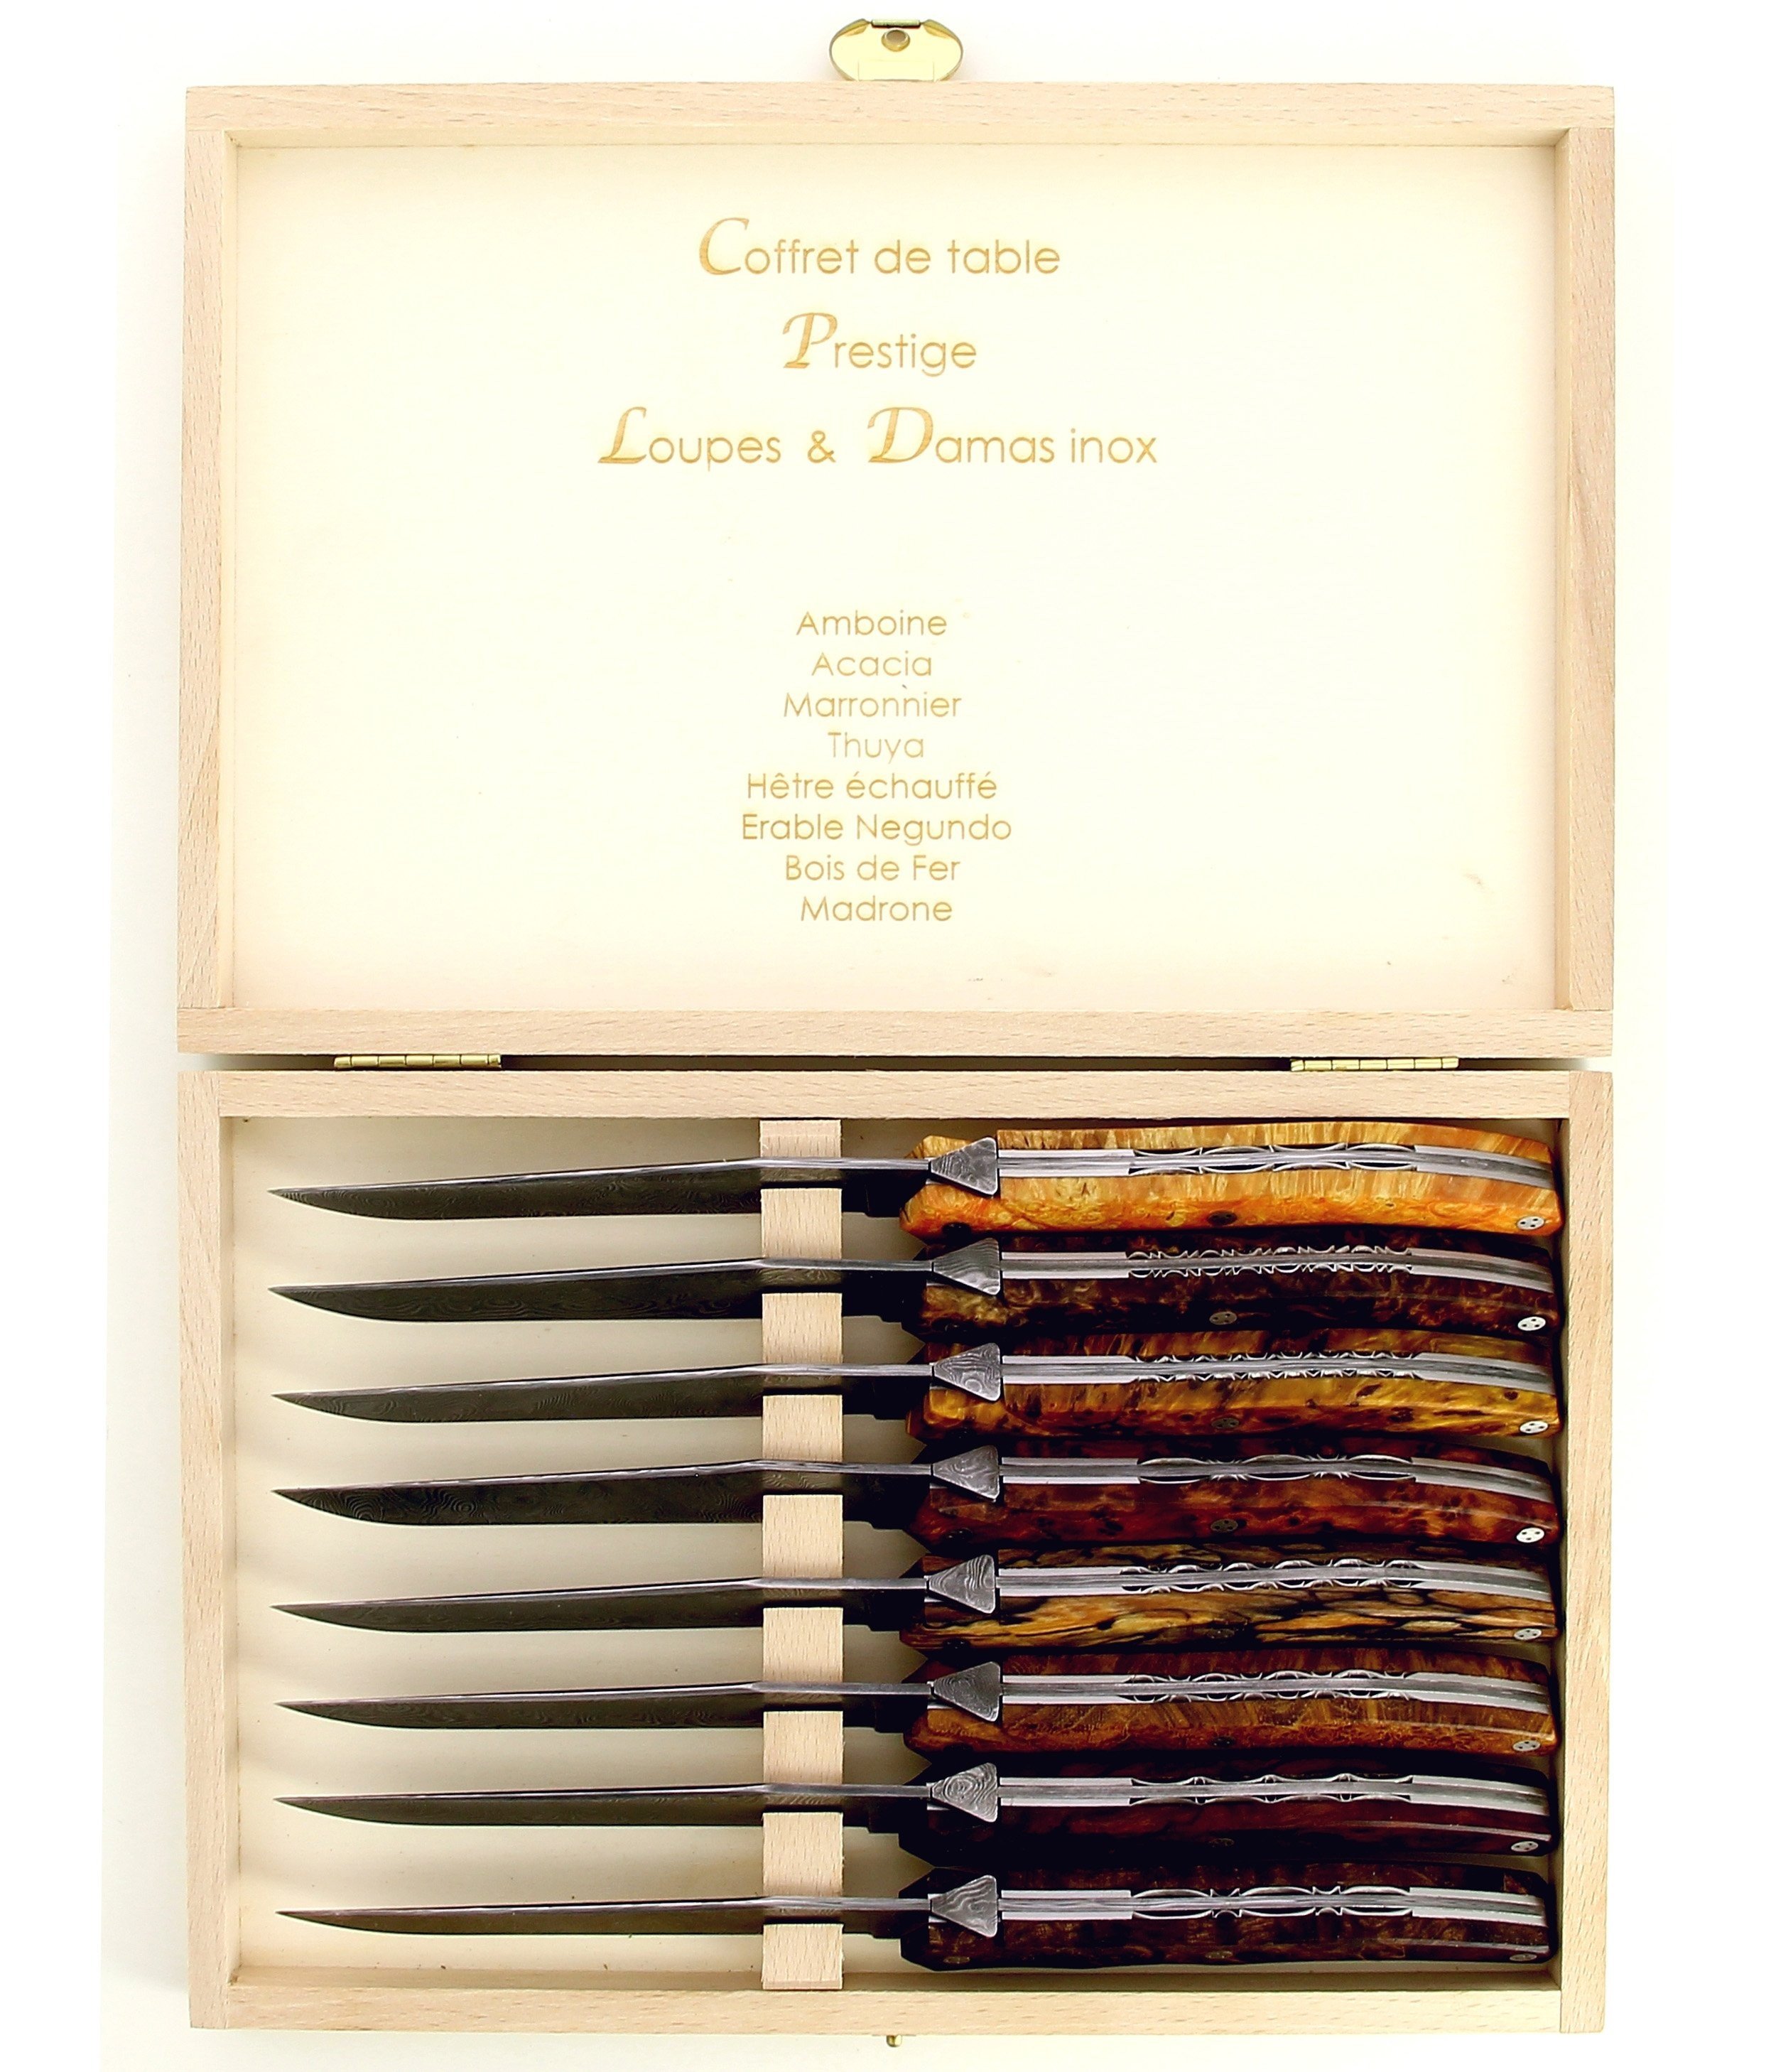 Coffret de table
Prestige
Loupes & Damas inox
Amboine
Acacia
Marronnier
Thuya
Hêtre échauffé
Erable Negundo
Bois de Fer
Madrone